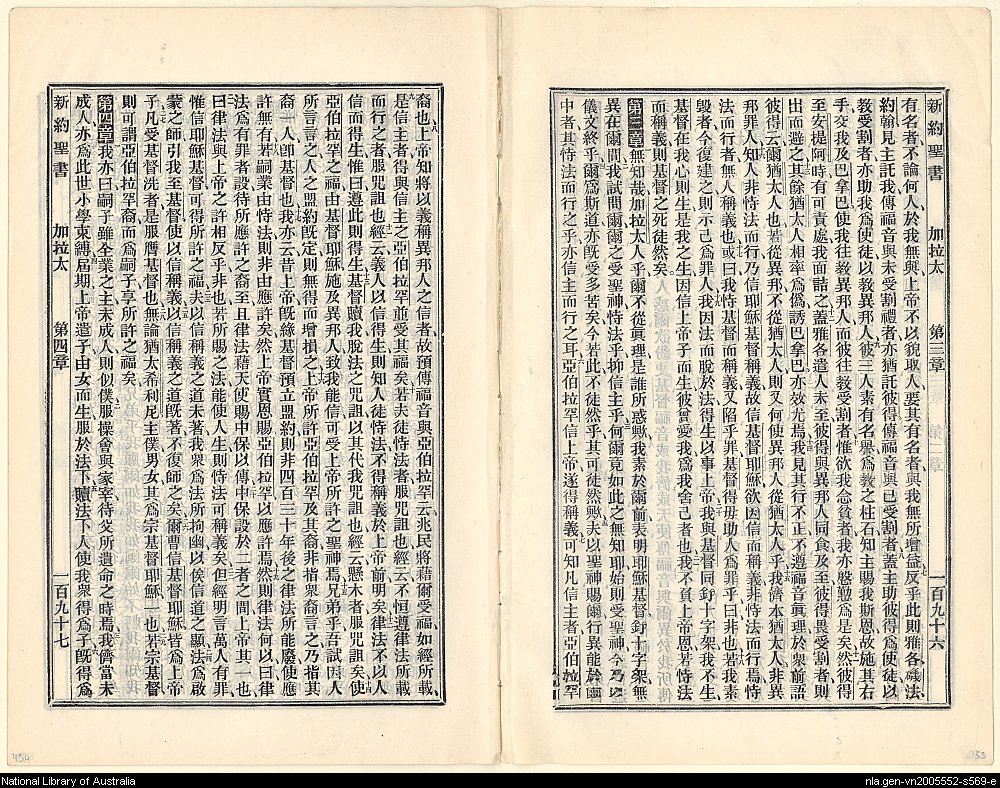 新約聖書　加拉太　第三章　一百九十六
有名者不論何人於我無與上帝不以貌取人要其有名者與我無所增益反乎此則雅各磯法
約翰見主託我傳福音與未受割禮者亦猶託彼得傳福音與已受割者蓋主助彼得爲使徒以
教受割者亦助我爲使徒以教異邦人彼三人素有名譽爲教之柱石知主賜我斯恩故施其右
手交我及巴拿巴使我往教異邦人而彼往教受割者惟欲我念貧者我亦慇懃爲是矣然彼得
至安提阿時有可責處我面詰之蓋雅各遣人未至彼得與異邦人同食及至彼得畏受割者則
出而避之其餘猶太人相率爲僞誘巴拿巴亦效尤焉我見其行不正不遵福音眞理於衆前語
彼得云爾猶太人也若從異邦不從猶太人則又何使異邦人從猶太人乎我儕本猶太人非異
邦罪人知人非恃法而行乃信耶穌基督稱義故信基督耶穌欲因信而稱義非恃法而行焉恃
法而行者無人稱義也或曰我恃基督而稱義又陷乎罪基督得毋助人爲罪乎曰非也若我素
毀者今復建之則示己爲罪人我因法而脫於法得生以事上帝我與基督同釘十字架我不生
基督在我心則生是我之生因信上帝子而生彼曾愛我爲我舍己者也我不負上帝恩若恃法
而稱義則基督之死徒然矣
第三章無知哉加拉太人乎爾不從眞理是誰所惑歟我素於爾前表明耶穌基督釘十字架無
異在爾間我試問爾爾之受聖神恃法乎抑信主乎何爾竟如此之無知耶始則受聖神今乃以
儀文終乎爾爲斯道亦旣受多苦矣今若此不徒然乎其可徒然歟夫以聖神賜爾行異能於爾
中者其恃法而行之乎亦信主而行之耳亞伯拉罕信上帝遂得稱義可知凡信主者亞伯拉罕
裔也上帝知將以義稱異邦人之信者故預傳福音與亞伯拉罕云兆民將藉爾受福如經所載
是信主者得與信主之亞伯拉罕並受其福矣若夫徒恃法者服咒詛也經云不恒遵律法所載
而行之者服咒詛也經云義人以信得生則知人徒恃法不得稱義於上帝前明矣律法不以人
信而得生惟曰遵此則得生基督贖我脫法之咒詛以其代我咒詛也經云懸木者服咒詛矣使
亞伯拉罕之福由基督耶穌施及異邦人致我能信可受上帝所許之聖神焉兄弟乎吾試因人
所言言之人之盟約旣定則無得而增損之上帝所許亞伯拉罕及其裔非指衆裔言之乃指其
裔一人卽基督也我亦云昔上帝旣緣基督預立盟約則非四百三十年後之律法所能廢使應
許無有若嗣業由恃法則非由應許矣然上帝實恩賜亞伯拉罕以應許焉然則律法何以曰律
法爲有罪者設待所應許之裔至且律法藉天使賜中保以傳中保設於二者之間上帝其一也
曰律法與上帝之許相反乎非也若所賜之法能使人生則恃法可稱義矣但經明言萬人有罪
惟信耶穌基督可得所許之福夫以信稱義之道未著我衆爲法所拘幽以俟信道之顯法爲啟
蒙之師引我至基督使以信稱義以信稱義之道旣著不復師之矣爾曹信基督耶穌皆爲上帝
子凡受基督洗者是服膺基督也無論猶太希利尼主僕男女其爲宗基督耶穌一也若宗基督
則可謂亞伯拉罕裔而爲嗣子享所許之福矣
第四章我亦曰嗣子雖全業之主未成人則似僕服操會與家宰待父所遺命之時焉我儕當未
成人亦爲此世小學束縛屆期上帝遣子由女而生服於法下贖法下人使我衆得爲子旣得爲
新約聖書　加拉太　第四章　一百九十七
National Library of Australia
nla.gen-vn2005552-s569-e